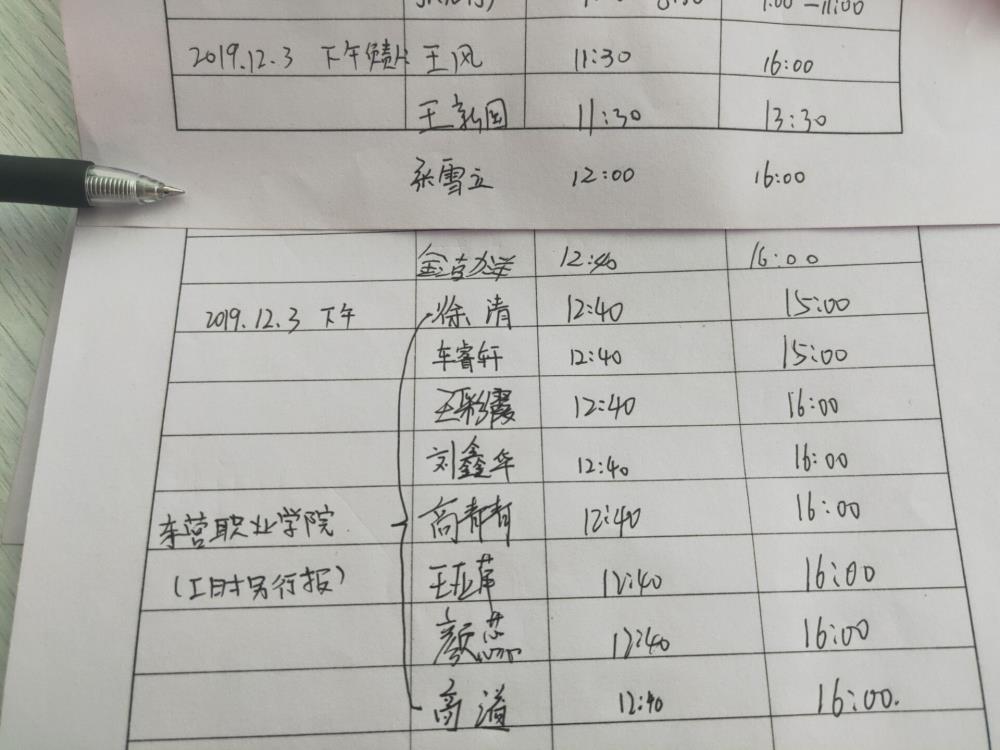 1:00-11:00
2019.12.3 下午 王风 11:30 16:00
王新国 11:30 13:30
张雪立 12:00 16:00
12:40 16:00
2019.12.3 下午 徐清 12:40 15:00
车睿轩 12:40 15:00
王彩霞 12:40 16:00
刘鑫华 12:40 16:00
东营职业学院 商青青 12:40 16:00
(工时另行报) 王亚萍 12:40 16:00
颜蕊 12:40 16:00
高溢 12:40 16:00.